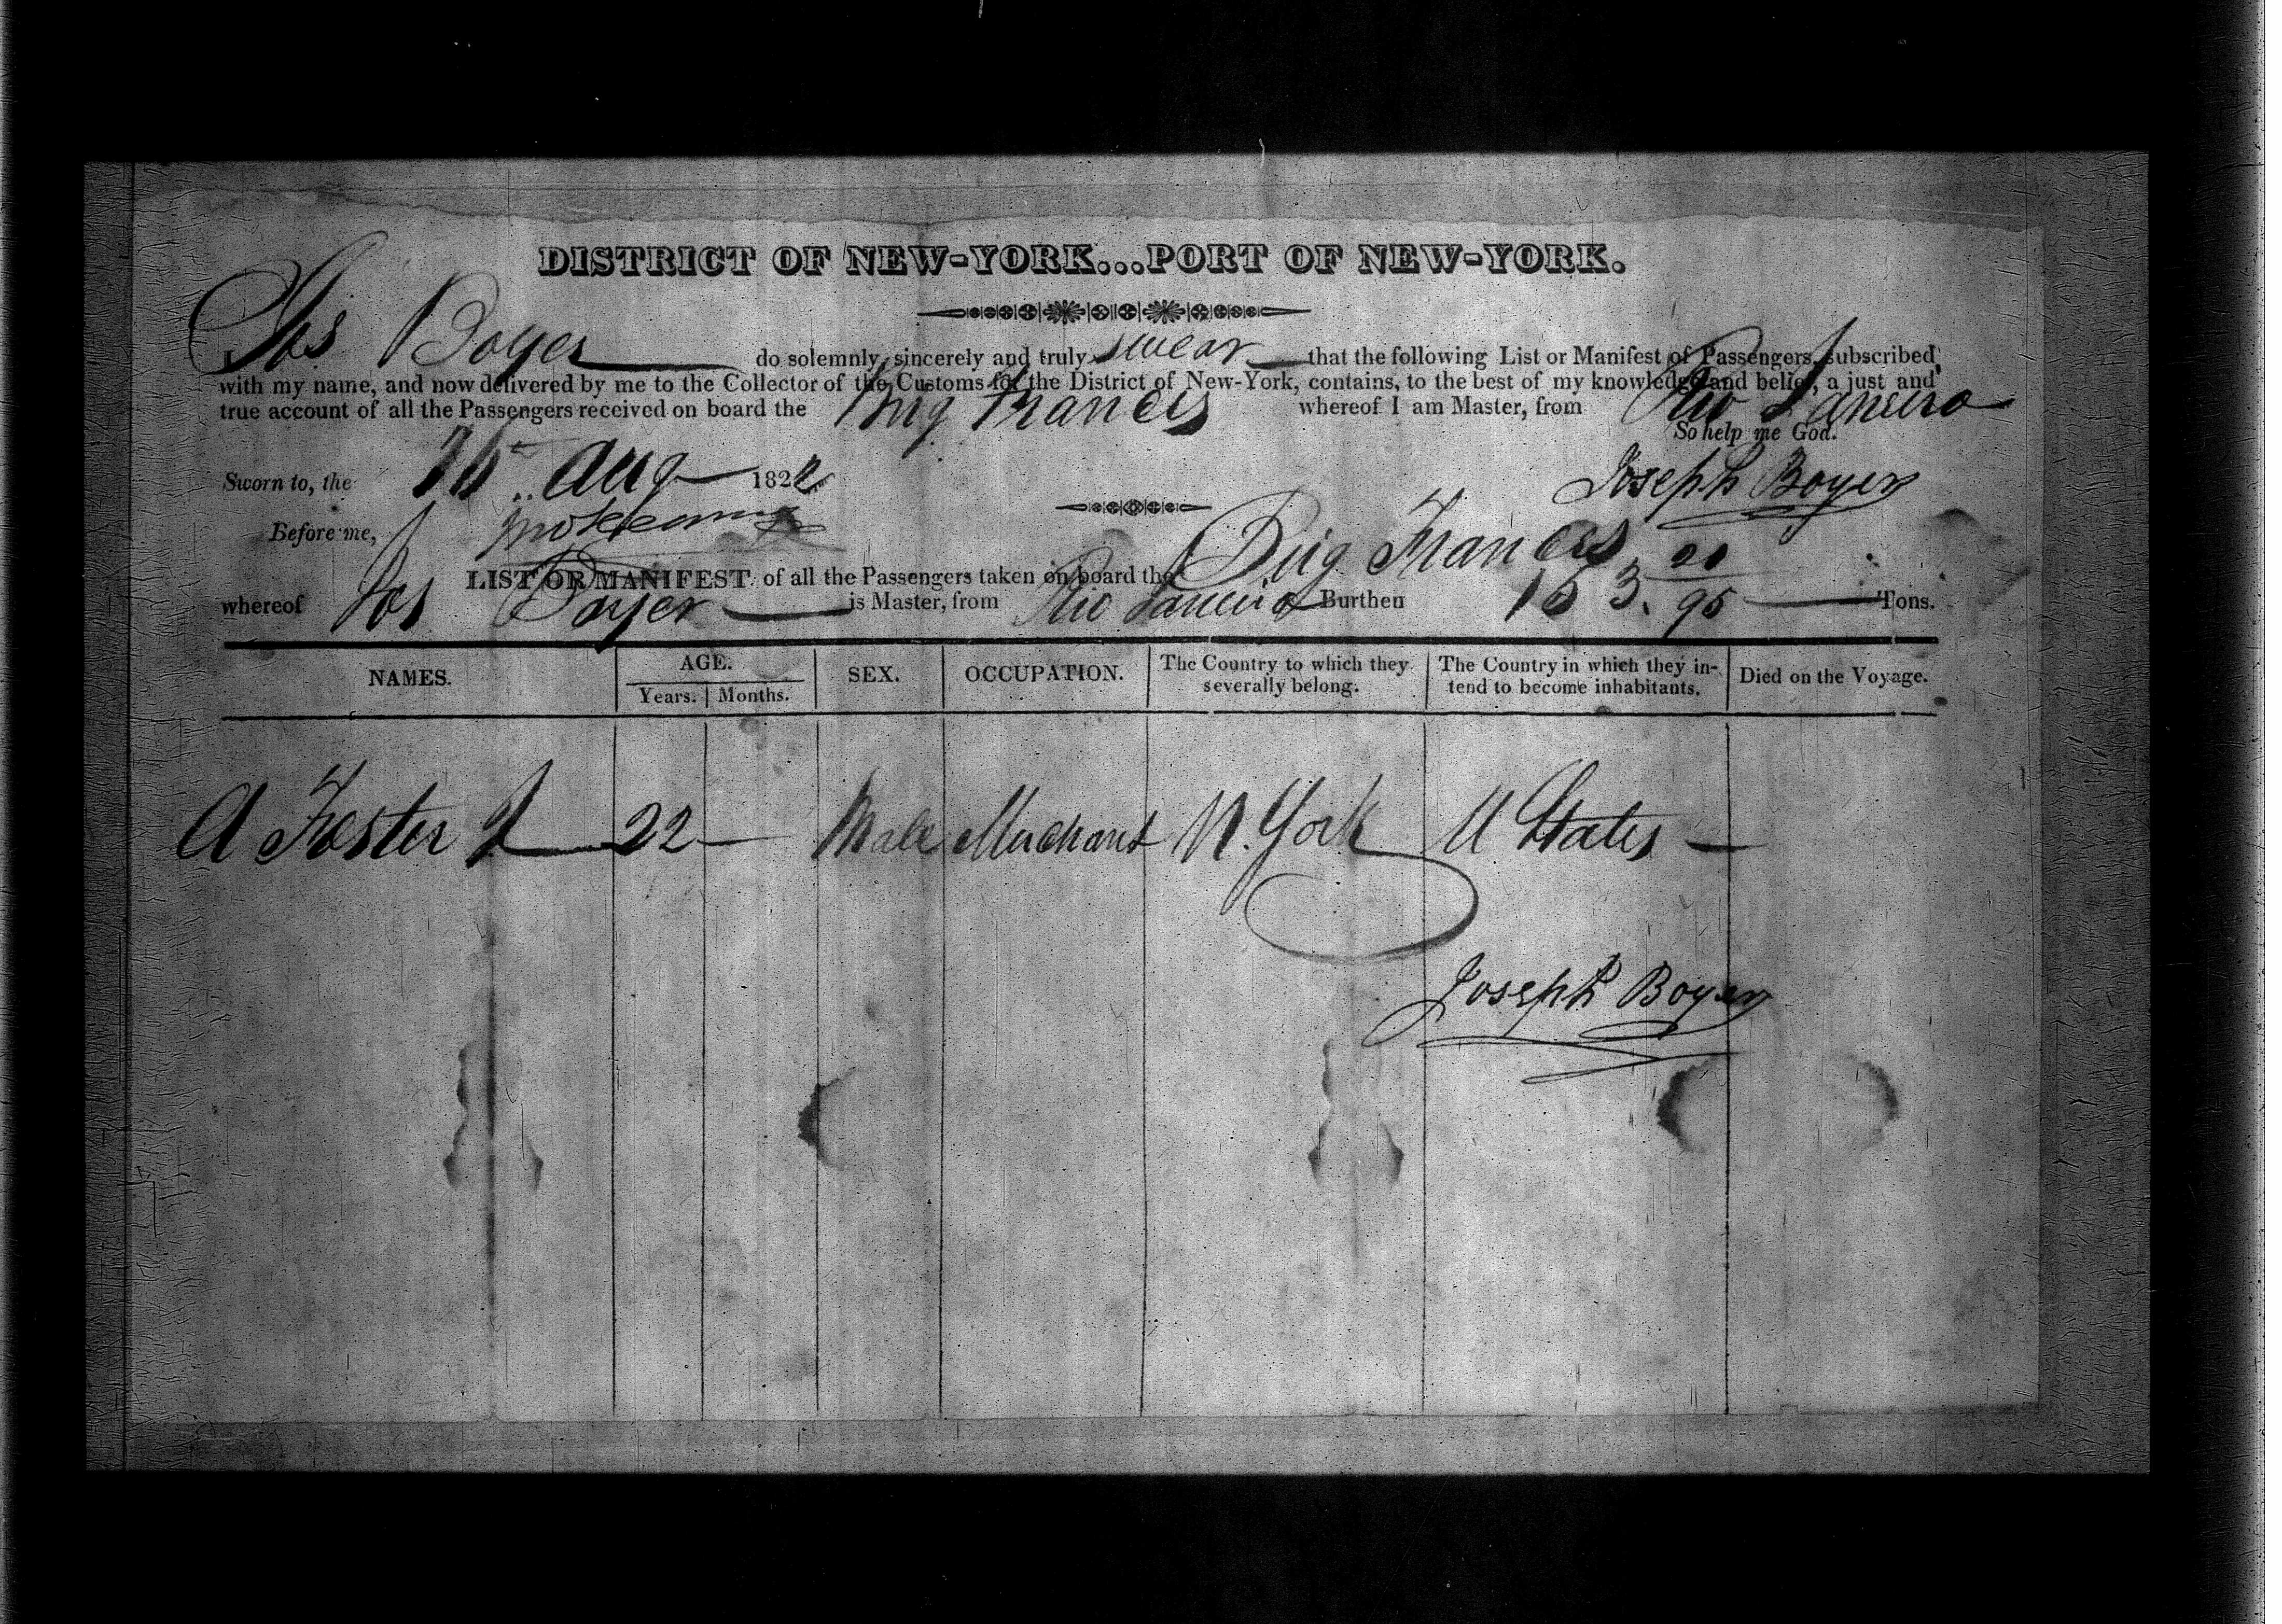 DISTRICT OF NEW-YORK...PORT OF NEW-YORK.
I, Jos Boyer do solemnly, sincerely and truly swear that the following List or Manifest of Passengers, subscribed
with my name, and now delivered by me to the Collector of the Customs for the District of New-York, contains, to the best of my knowledge and belief, a just and
true account of all the Passengers received on board the Brig Francis whereof I am Master, from Rio Janeiro
So help me God.
Sworn to, the Aug 1822
Joseph Boyer
Before me,
LIST OR MANIFEST of all the Passengers taken on board the Brig Francis
whereof Jos Boyer is Master, from Rio Janeiro Burthen 153. 20/95 Tons.
NAMES. AGE. SEX. OCCUPATION. The Country to which they severally belong. The Country in which they intend to become inhabitants. Died on the Voyage.
Years. Months.
A Foster J 22 Male Merchant N. York U States
Joseph Boyer